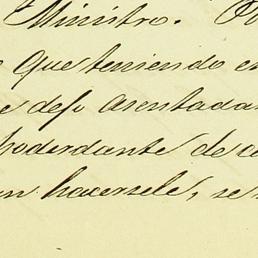 Ministro.
Que teniendo en
dejo asentada
poderdante de
hacersele, se